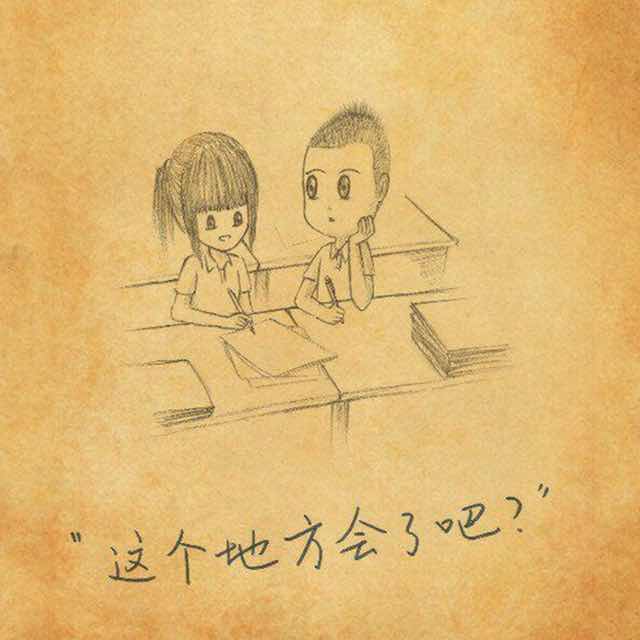 “这个地方会了吧?”